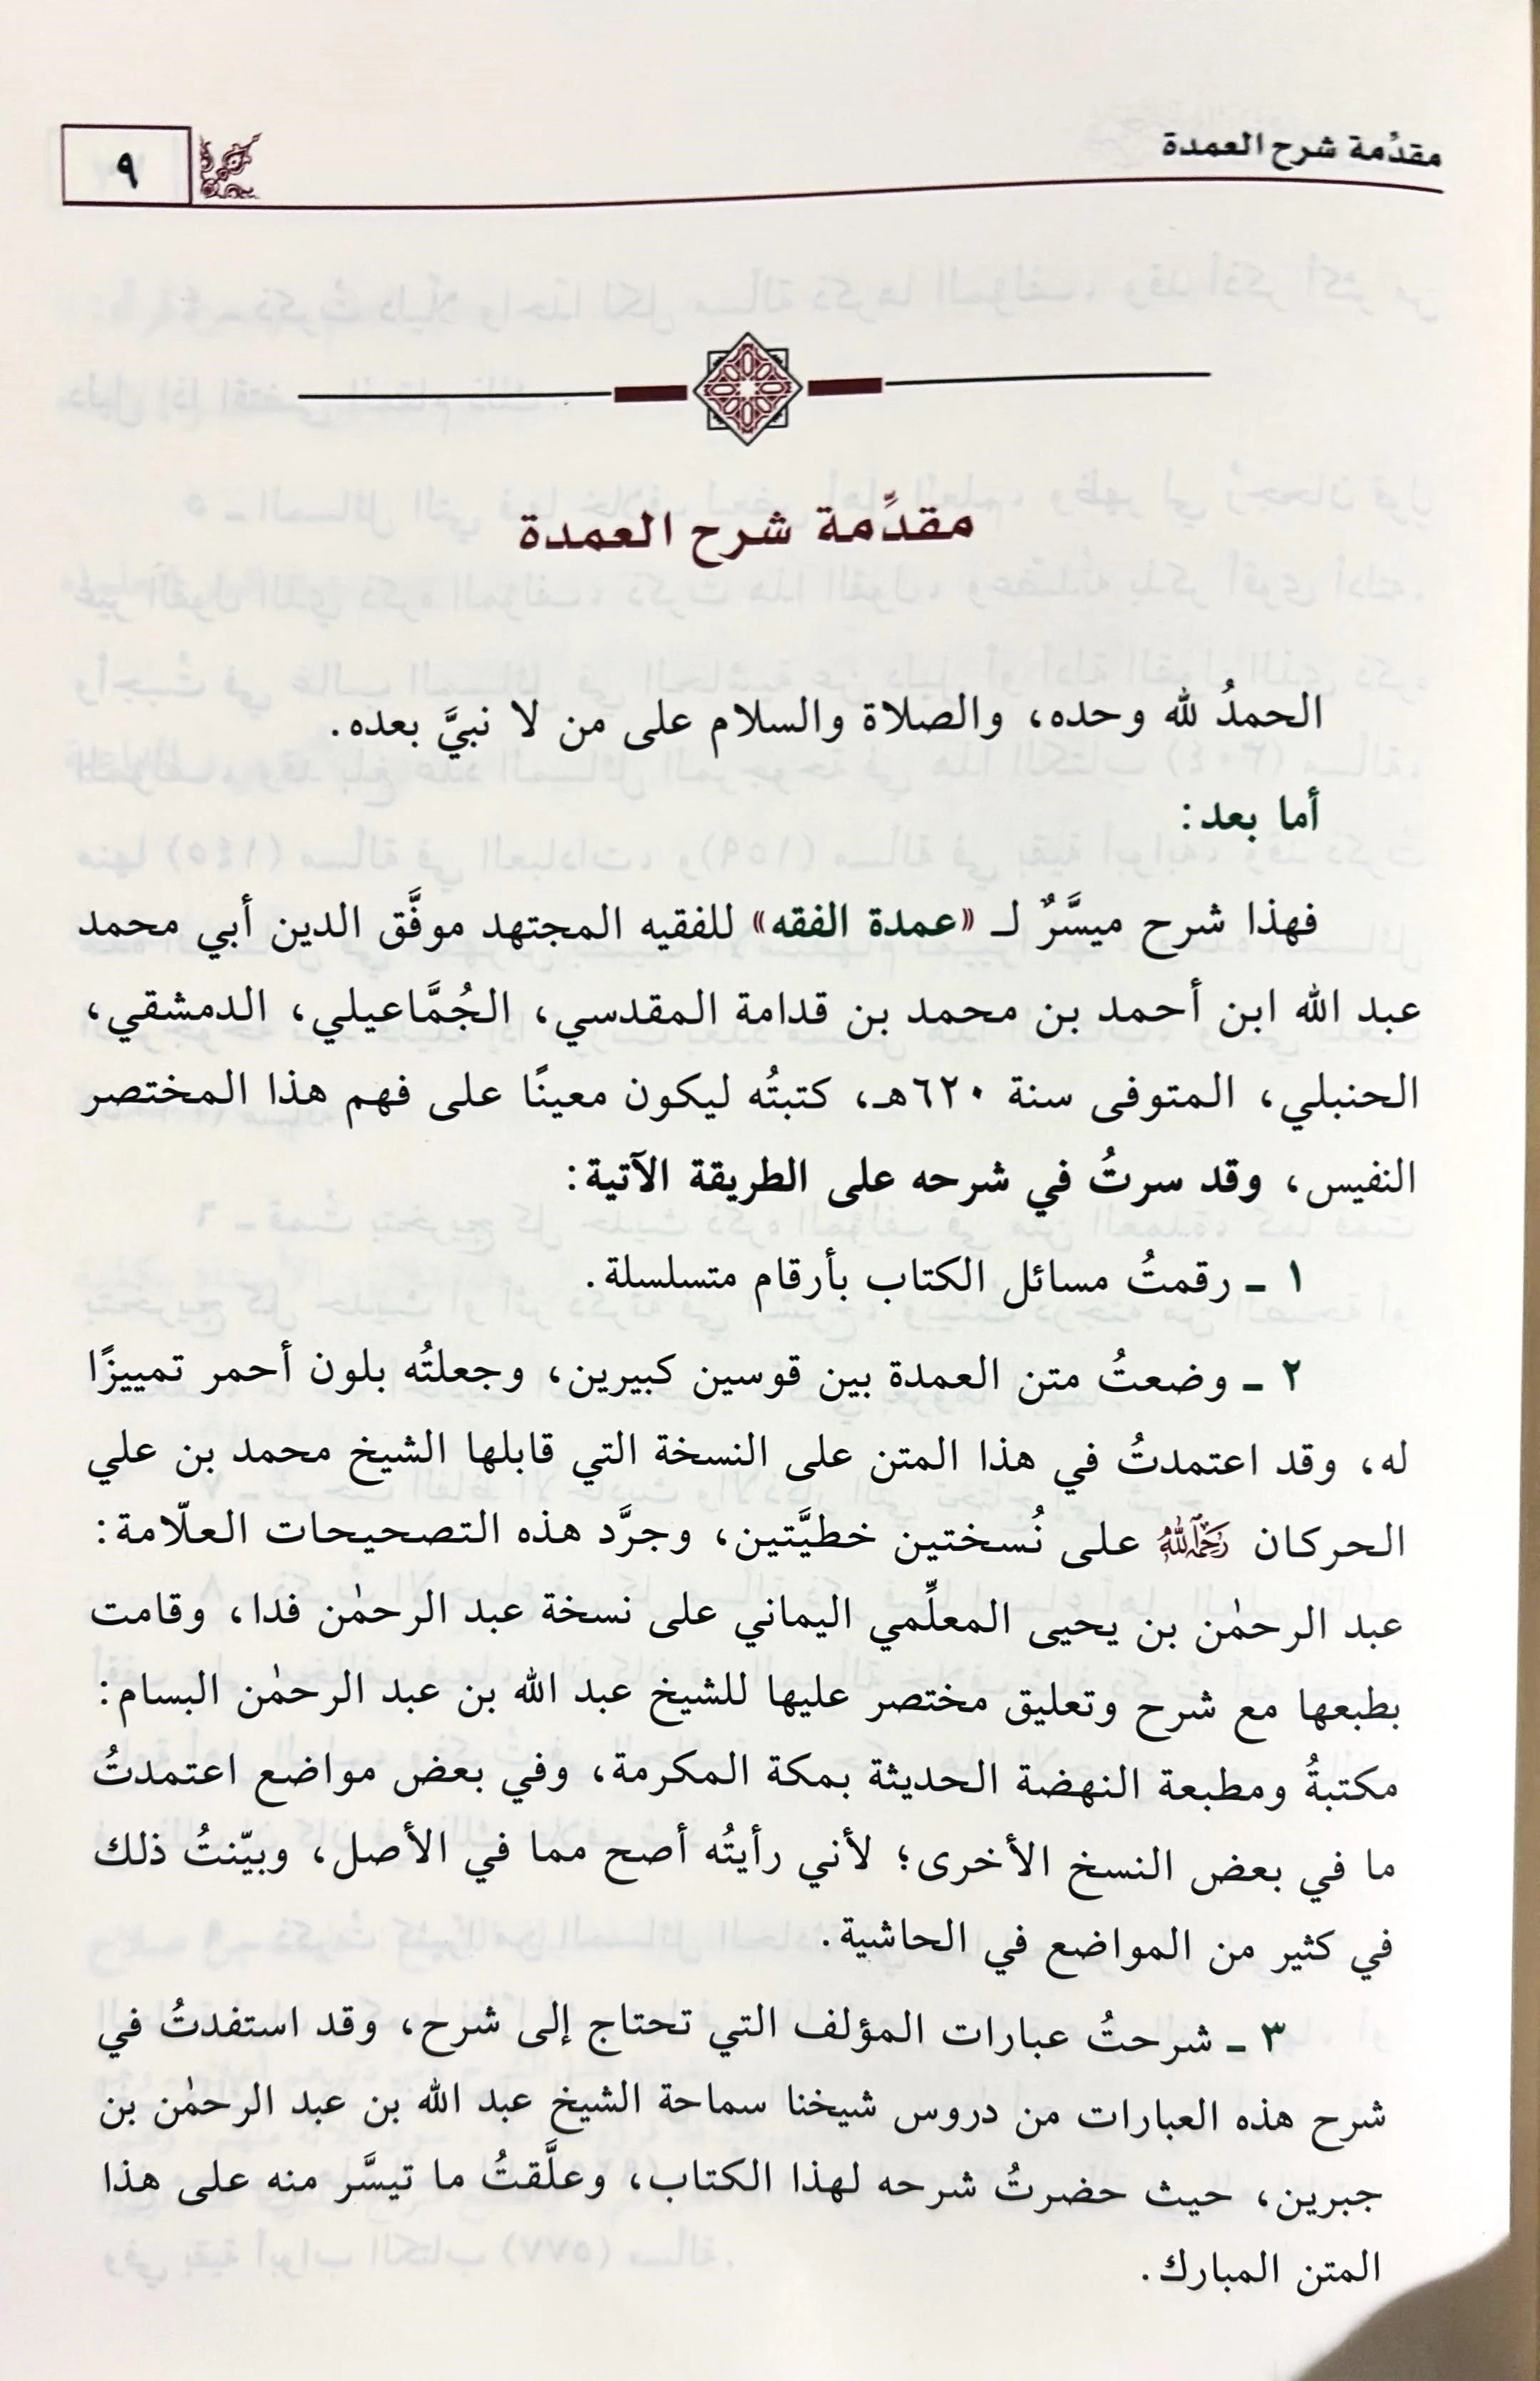 مقدِّمة شرح العمدة
٩
مقدِّمة شرح العمدة
الحمدُ لله وحده، والصلاة والسلام على من لا نبيَّ بعده.
أما بعد:
فهذا شرح ميسَّرٌ لـ «عمدة الفقه» للفقيه المجتهد موفَّق الدين أبي محمد
عبد الله ابن أحمد بن محمد بن قدامة المقدسي، الجُمَّاعيلي، الدمشقي،
الحنبلي، المتوفى سنة ٦٢٠هـ، كتبتُه ليكون معينًا على فهم هذا المختصر
النفيس، وقد سرتُ في شرحه على الطريقة الآتية:
١ ـ رقمتُ مسائل الكتاب بأرقام متسلسلة.
٢ ـ وضعتُ متن العمدة بين قوسين كبيرين، وجعلتُه بلون أحمر تمييزًا
له، وقد اعتمدتُ في هذا المتن على النسخة التي قابلها الشيخ محمد بن علي
الحركان رَحِمَهُ اللَّهُ على نُسختين خطيَّتين، وجرَّد هذه التصحيحات العلّامة:
عبد الرحمٰن بن يحيى المعلِّمي اليماني على نسخة عبد الرحمٰن فدا، وقامت
بطبعها مع شرح وتعليق مختصر عليها للشيخ عبد الله بن عبد الرحمٰن البسام:
مكتبةُ ومطبعة النهضة الحديثة بمكة المكرمة، وفي بعض مواضع اعتمدتُ
ما في بعض النسخ الأخرى؛ لأني رأيتُه أصح مما في الأصل، وبيّنتُ ذلك
في كثير من المواضع في الحاشية.
٣ ـ شرحتُ عبارات المؤلف التي تحتاج إلى شرح، وقد استفدتُ في
شرح هذه العبارات من دروس شيخنا سماحة الشيخ عبد الله بن عبد الرحمٰن بن
جبرين، حيث حضرتُ شرحه لهذا الكتاب، وعلَّقتُ ما تيسَّر منه على هذا
المتن المبارك.